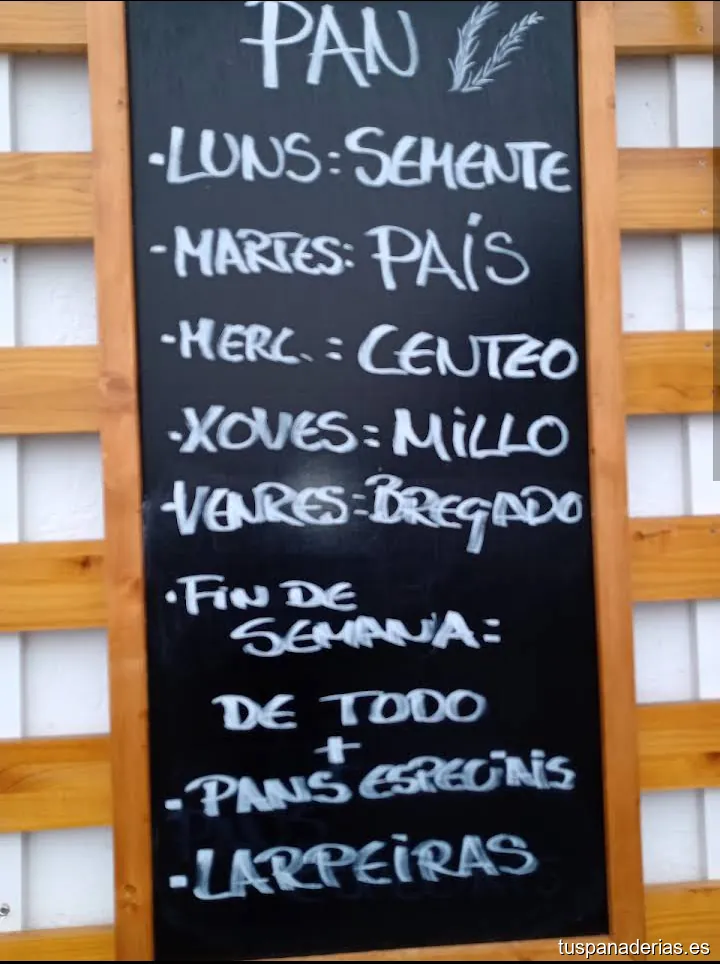 PAN
·LUNS: SEMENTE
-MARTES: PAÍS
·MERC. : CENTEO
·XOVES: MILLO
·VENRES: BREGADO
·FIN DE
SEMANA:
DE TODO
+
-PANS ESPECIAIS
-LARPEIRAS
tuspanaderias.es